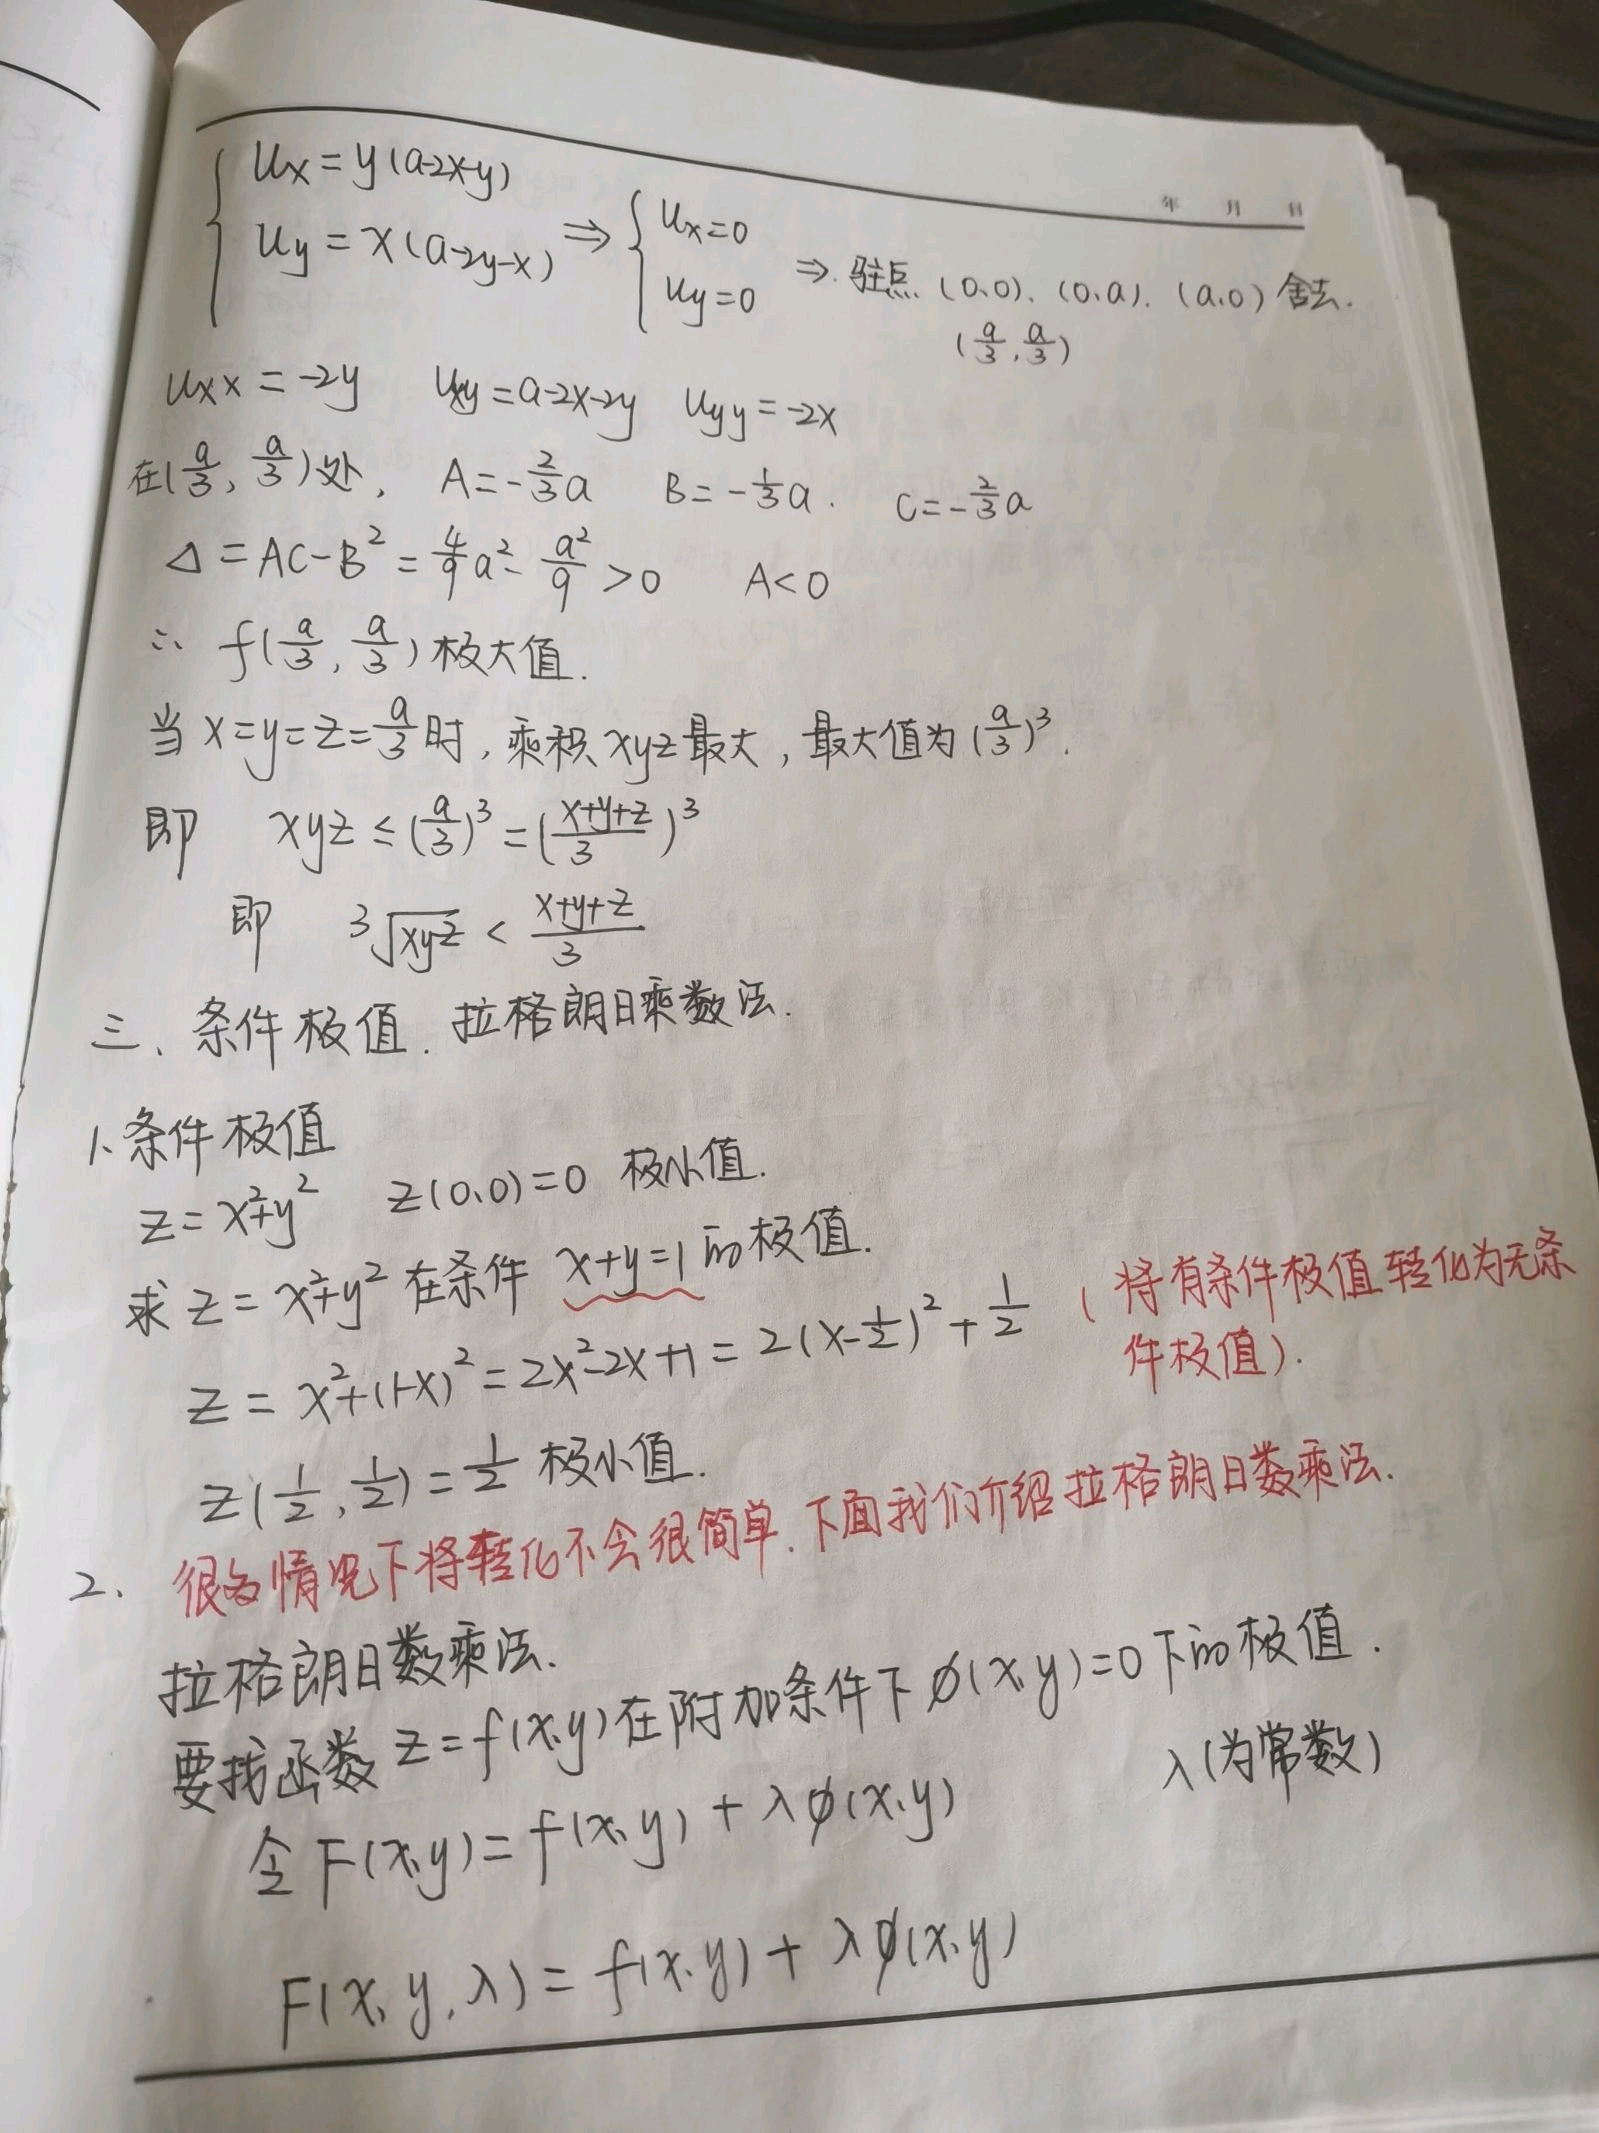 年 月 日
{ Ux = y(a-2x-y)
Uy = x(a-2y-x) ⇒ { Ux=0
Uy=0 ⇒. 驻点. (0,0). (0,a). (a,0) 舍去.
(a/3, a/3)
Uxx = -2y Uxy = a-2x-2y Uyy = -2x
在(a/3, a/3)处, A=-2/3a B=-1/3a. C=-2/3a
Δ = AC-B² = 4/9a² - a²/9 >0 A<0
∴ f(a/3, a/3) 极大值.
当 x=y=z=a/3时, 乘积 xyz 最大, 最大值为 (a/3)³.
即 xyz ≤ (a/3)³ = (x+y+z/3)³
即 ³√xyz < x+y+z/3
三、条件极值. 拉格朗日乘数法.
1、条件极值
z = x²+y² z(0,0)=0 极小值.
求 z = x²+y² 在条件 x+y=1 的极值.
z = x²+(1-x)² = 2x²-2x+1 = 2(x-1/2)² + 1/2 (将有条件极值转化为无条
件极值).
z(1/2, 1/2) = 1/2 极小值.
2、很多情况下将转化不会很简单. 下面我们介绍拉格朗日数乘法.
拉格朗日数乘法.
要找函数 z = f(x,y) 在附加条件下 φ(x,y)=0 下的极值.
令 F(x,y) = f(x,y) + λφ(x,y) λ(为常数)
F(x, y, λ) = f(x,y) + λφ(x,y)